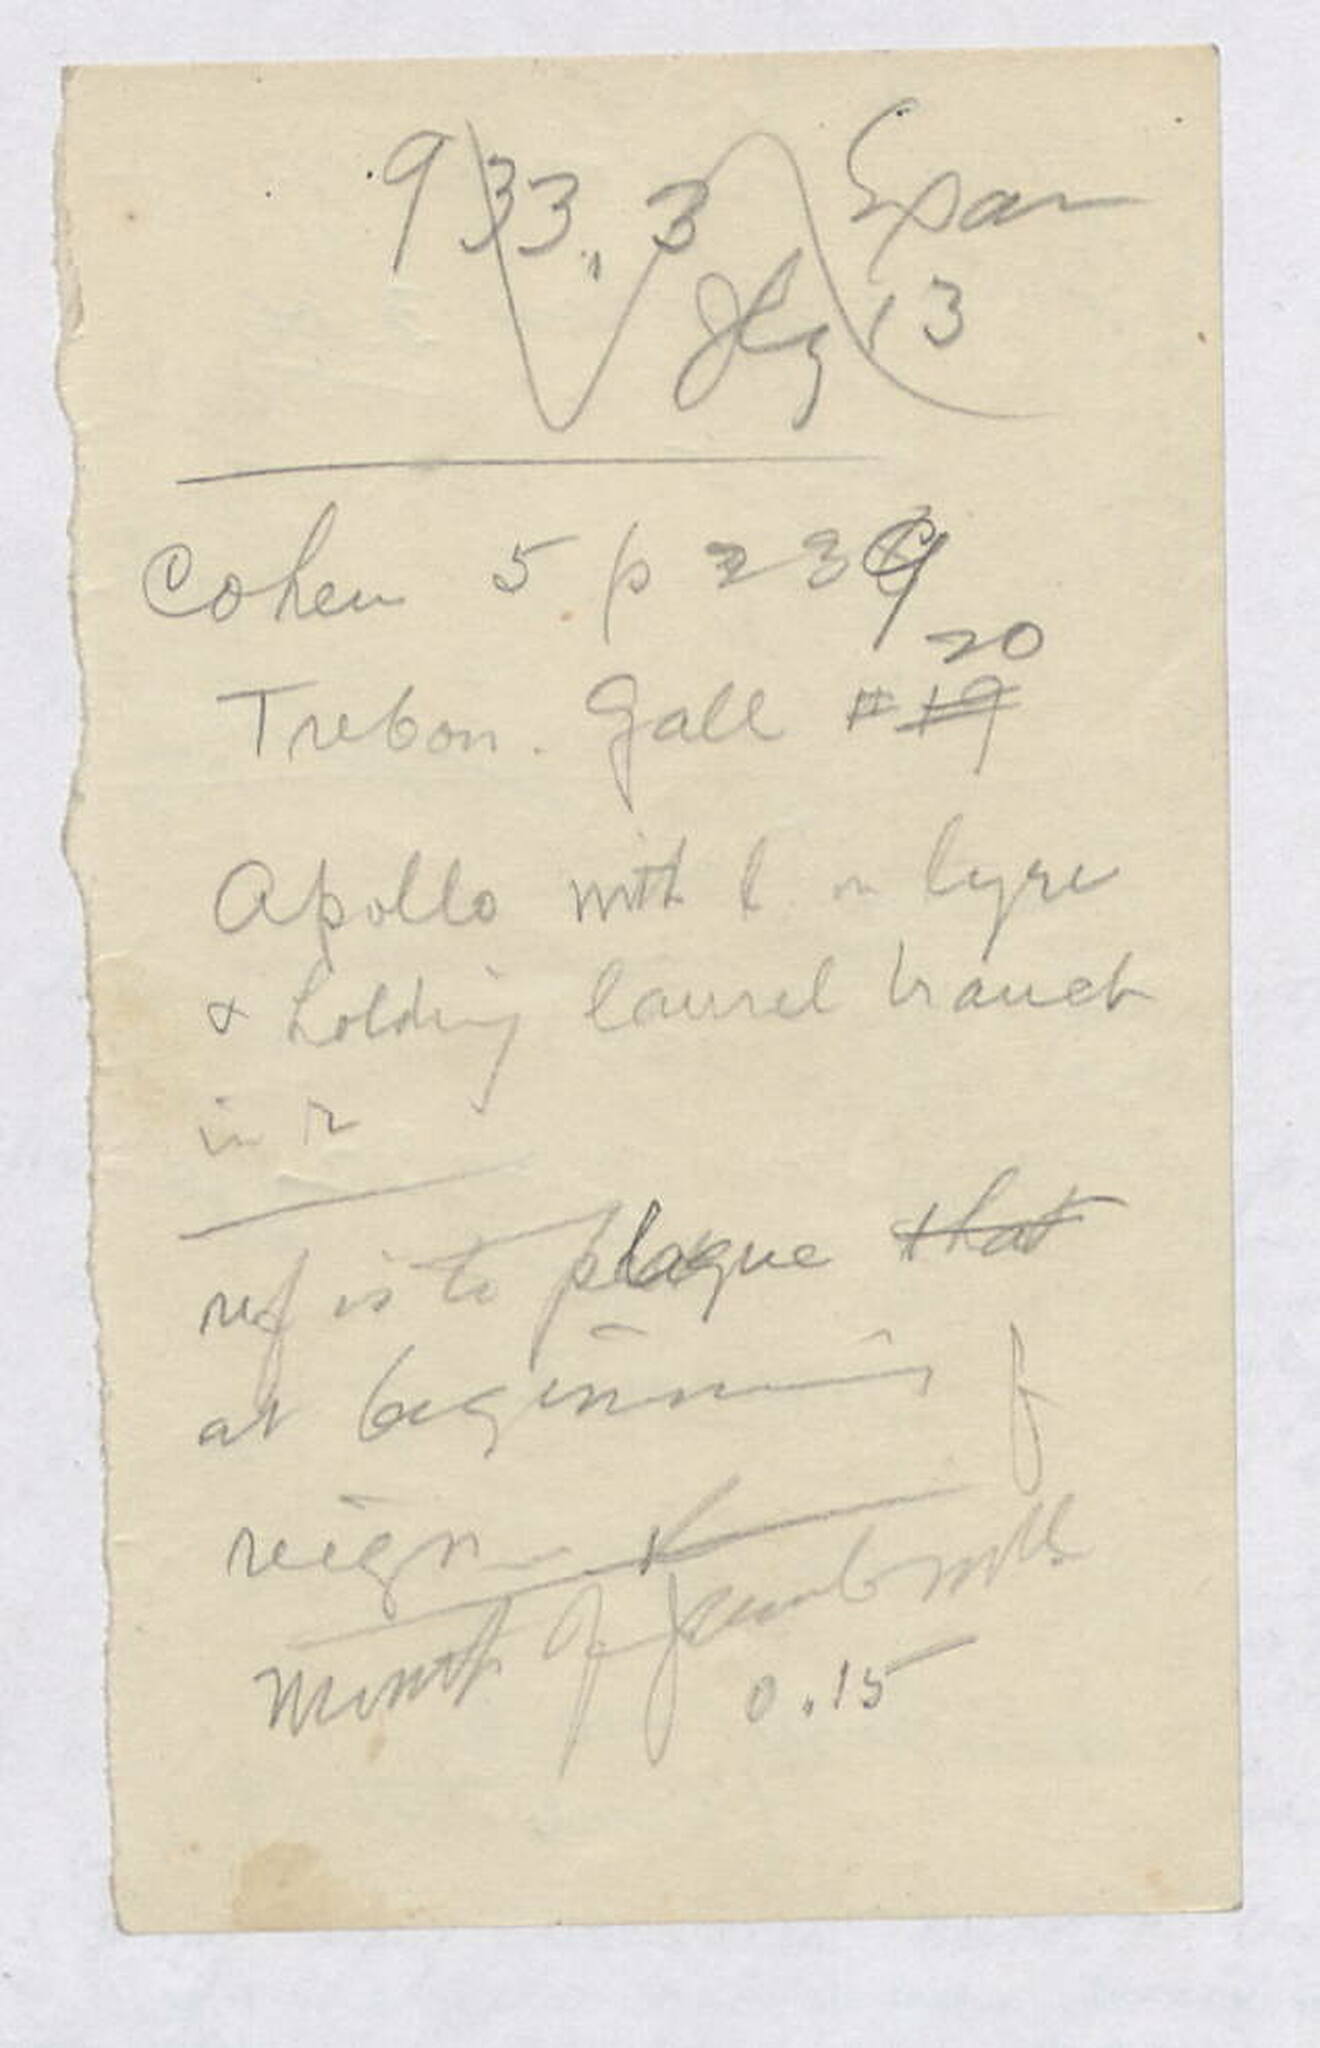 933., 3 Span
Jly 13
Cohen 5 p 239
20
Trebon. Gall # 19
Apollo with l. on lyre
& holding laurel branch
in r
ref is to plague that
at beginning of
reign
month of
0.15